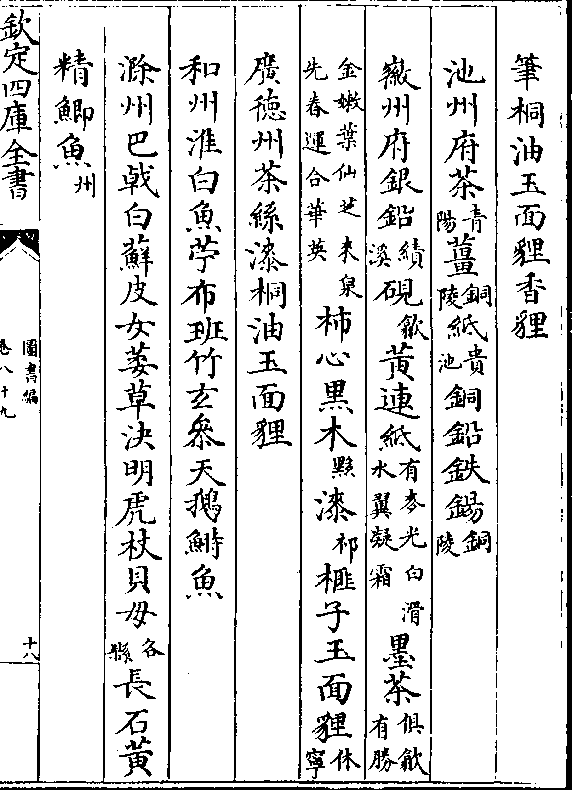 筆桐油玉面貍香貍
池州府茶青陽薑銅陵紙貴池銅鉛鉄錫銅陵
徽州府銀鉛績溪硯歙黃連紙有麥光白滑水翼凝霜墨茶俱歙有勝
金嫩葉仙芝来泉先春運合華英柿心黑木黟漆祁榧子玉面貍休寧
廣德州茶絲漆桐油玉面貍
和州淮白魚苧布班竹玄參天鵝鰣魚
滁州巴戟白蘇皮女萎草決明虎杖貝母各縣長石黃
精鯽魚州
欽定四庫全書
圖書編
卷八十九
十八